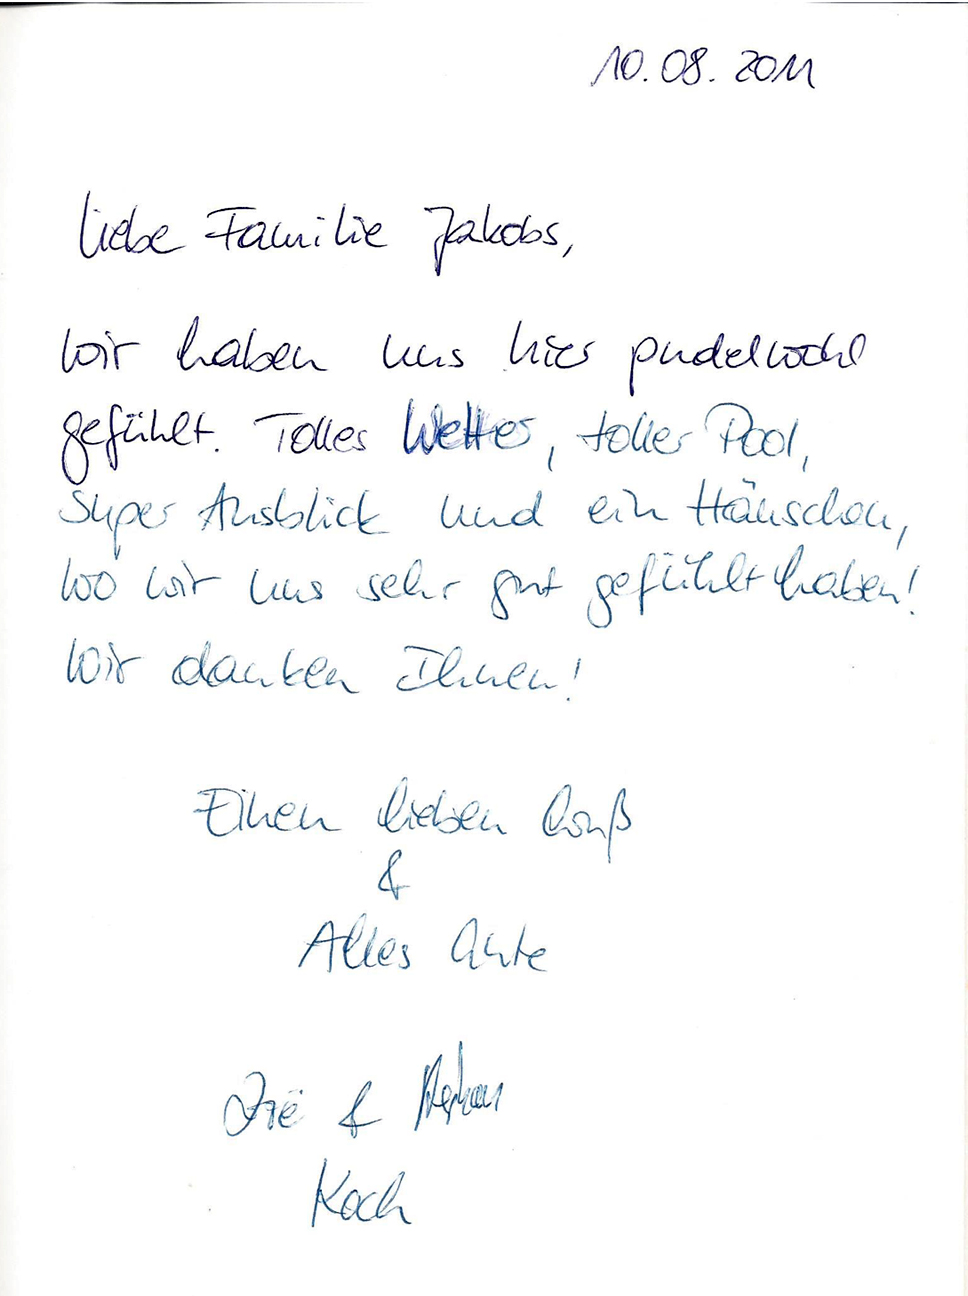 10.08.2011
Liebe Familie Jakobs,
wir haben uns hier pudelwohl
gefühlt. Tolles Wetter, toller Pool,
super Ausblick und ein Häuschen,
wo wir uns sehr gut gefühlt haben!
Wir danken Ihnen!
Einen lieben Gruß
&
Alles Gute
Zoë &
Koch